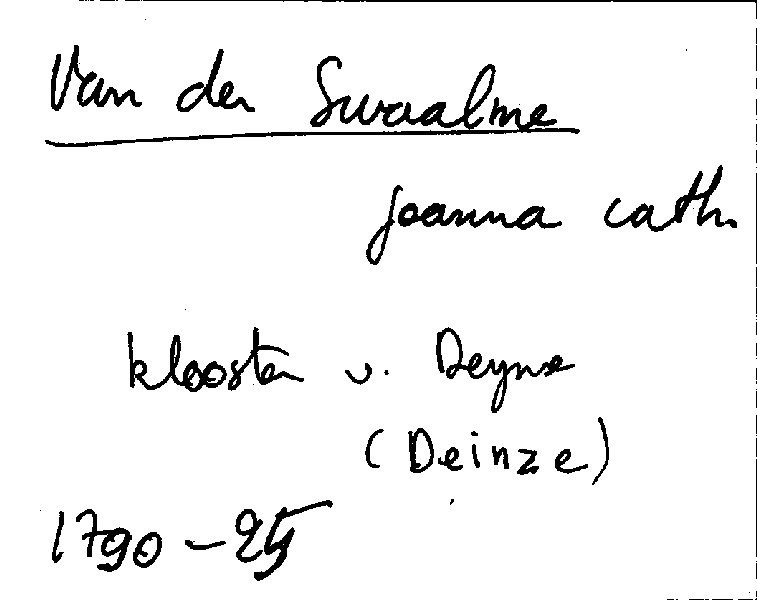 Van der Swaalme
Joanna Cath.
klooster v. Deynse
(Deinze)
1790 - 25